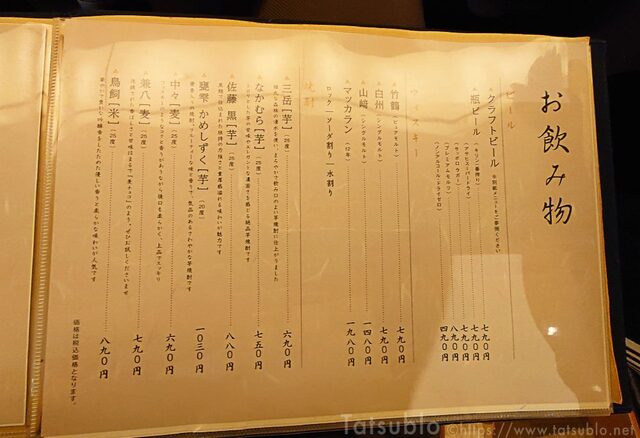 お飲み物
ビール
クラフトビール ※別紙メニューをご参照ください
瓶ビール
(キリン一番搾り) 七九〇円
(アサヒスーパードライ) 七九〇円
(サッポロラガー) 七九〇円
(プレミアムモルツ) 八九〇円
(ノンアルコール・ドライゼロ) 四九〇円
ウイスキー
竹鶴 (ピュアモルト) 七九〇円
白州 (シングルモルト) 七九〇円
山﨑 (シングルモルト) 一四八〇円
マッカラン (12年) 一九八〇円
ロック/ソーダ割り/水割り
焼酎
三岳[芋] (25度) 六九〇円
なかむら[芋] (25度) 七五〇円
佐藤 黒[芋] (25度) 八八〇円
甕雫・かめしずく[芋] (20度) 一〇三〇円
中々[麦] (25度) 六九〇円
兼八[麦] (25度) 七九〇円
鳥飼[米] (25度) 八九〇円
価格は税込価格となります。
Tatsublo ©https://www.tatsublo.net